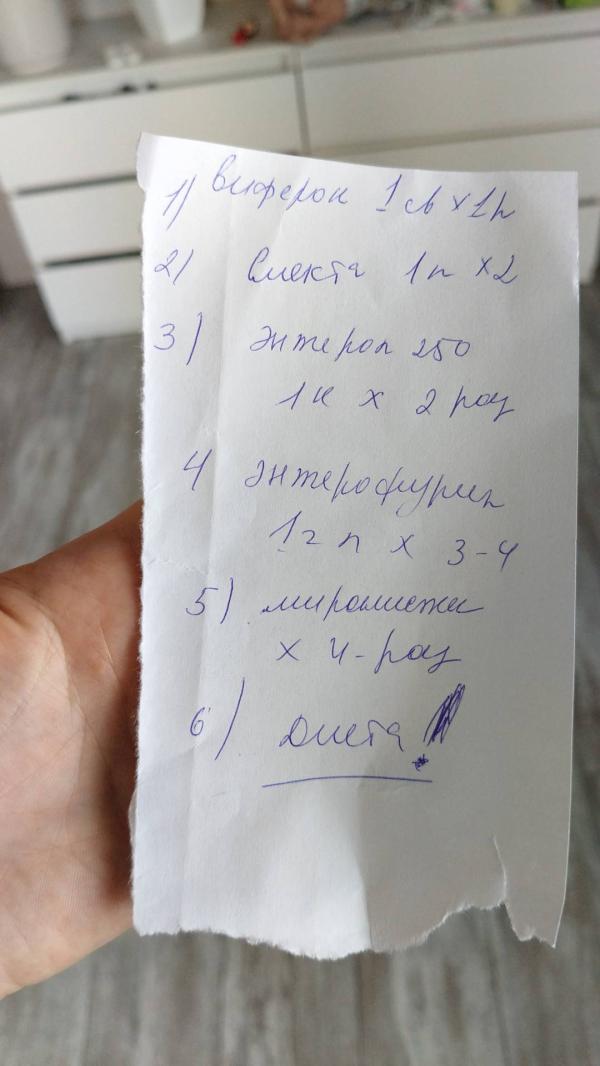 1) Виферон 1 св х 1 р
2) Смекта 1 п х 2
3) Энтерол 250
1 к х 2 раз
4 Энтерофурил
1 г л х 3-4
5) мирамисти
х 4-раз
6) Диета!